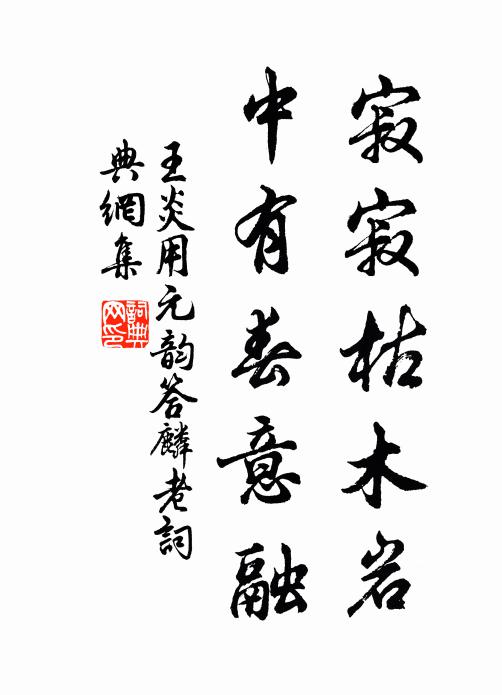 寂寂枯木岩
中有春意融
王炎用元韵答麟老詞
典網集
詞典网印